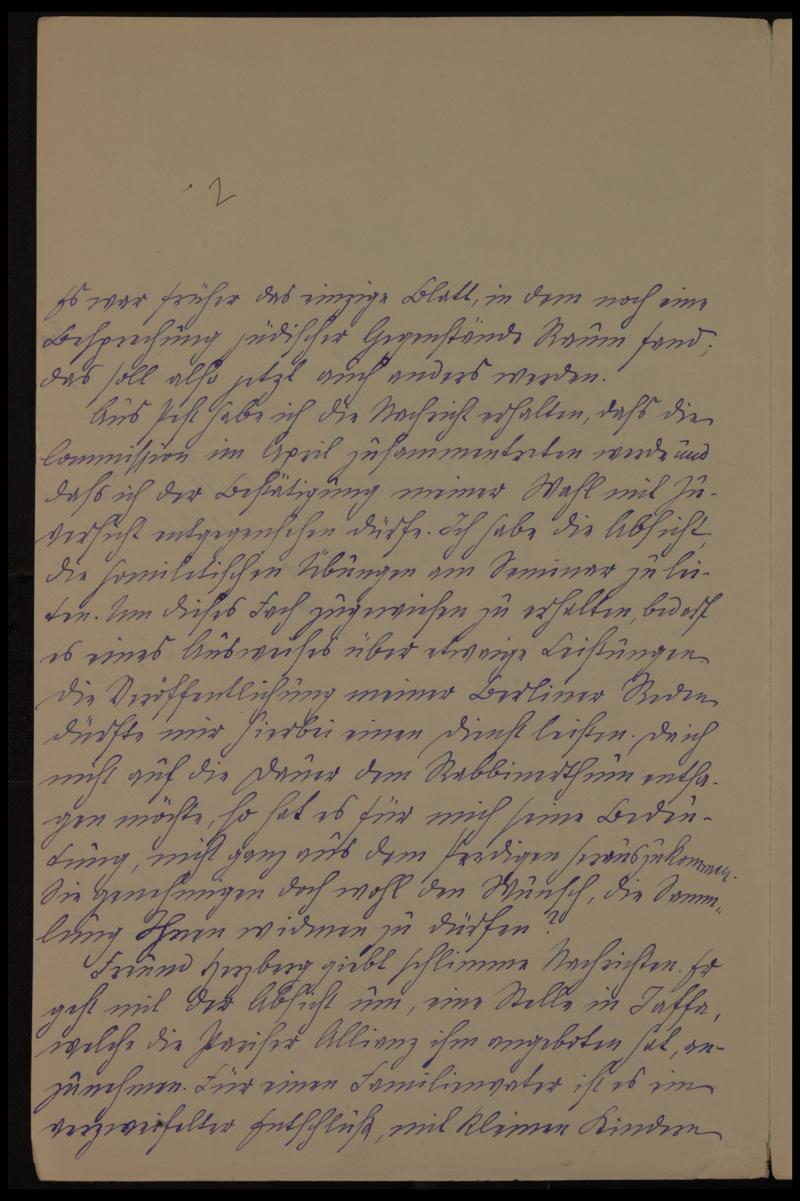 2
Es war früher das einzige Blatt, in dem noch eine
Besprechung jüdischer Gegenstände Raum fand;
das soll also jetzt auch anders werden.
Aus Pest habe ich die Nachricht erhalten, daß die
Commission im April zusammentreten werde und
daß ich der Bestätigung meiner Wahl mit Zu-
versicht entgegensehen dürfe. Ich habe die Absicht,
die homiletischen Übungen am Seminar zu lei-
ten. Um dieses Fach zugewiesen zu erhalten, bedarf
es eines Ausweises über etwaige Leistungen
Die Veröffentlichung meiner Berliner Reden
dürfte mir hierbei einen Dienst leisten. Da ich
nicht auf die Dauer dem Rabbinerthum entsa-
gen möchte, so hat es für mich seine Bedeu-
tung, nicht ganz aus dem Predigen herauszukommen.
Sie genehmigen doch wohl den Wunsch, die Samm-
lung Ihnen widmen zu dürfen?
Freund Herzberg giebt schlimme Nachrichten. Er
geht mit der Absicht um, eine Stelle in Jaffa,
welche die Pariser Allianz ihm angeboten hat, an-
zunehmen. Für einen Familienvater ist es ein
verzweifelter Entschluß, mit kleinen Kindern